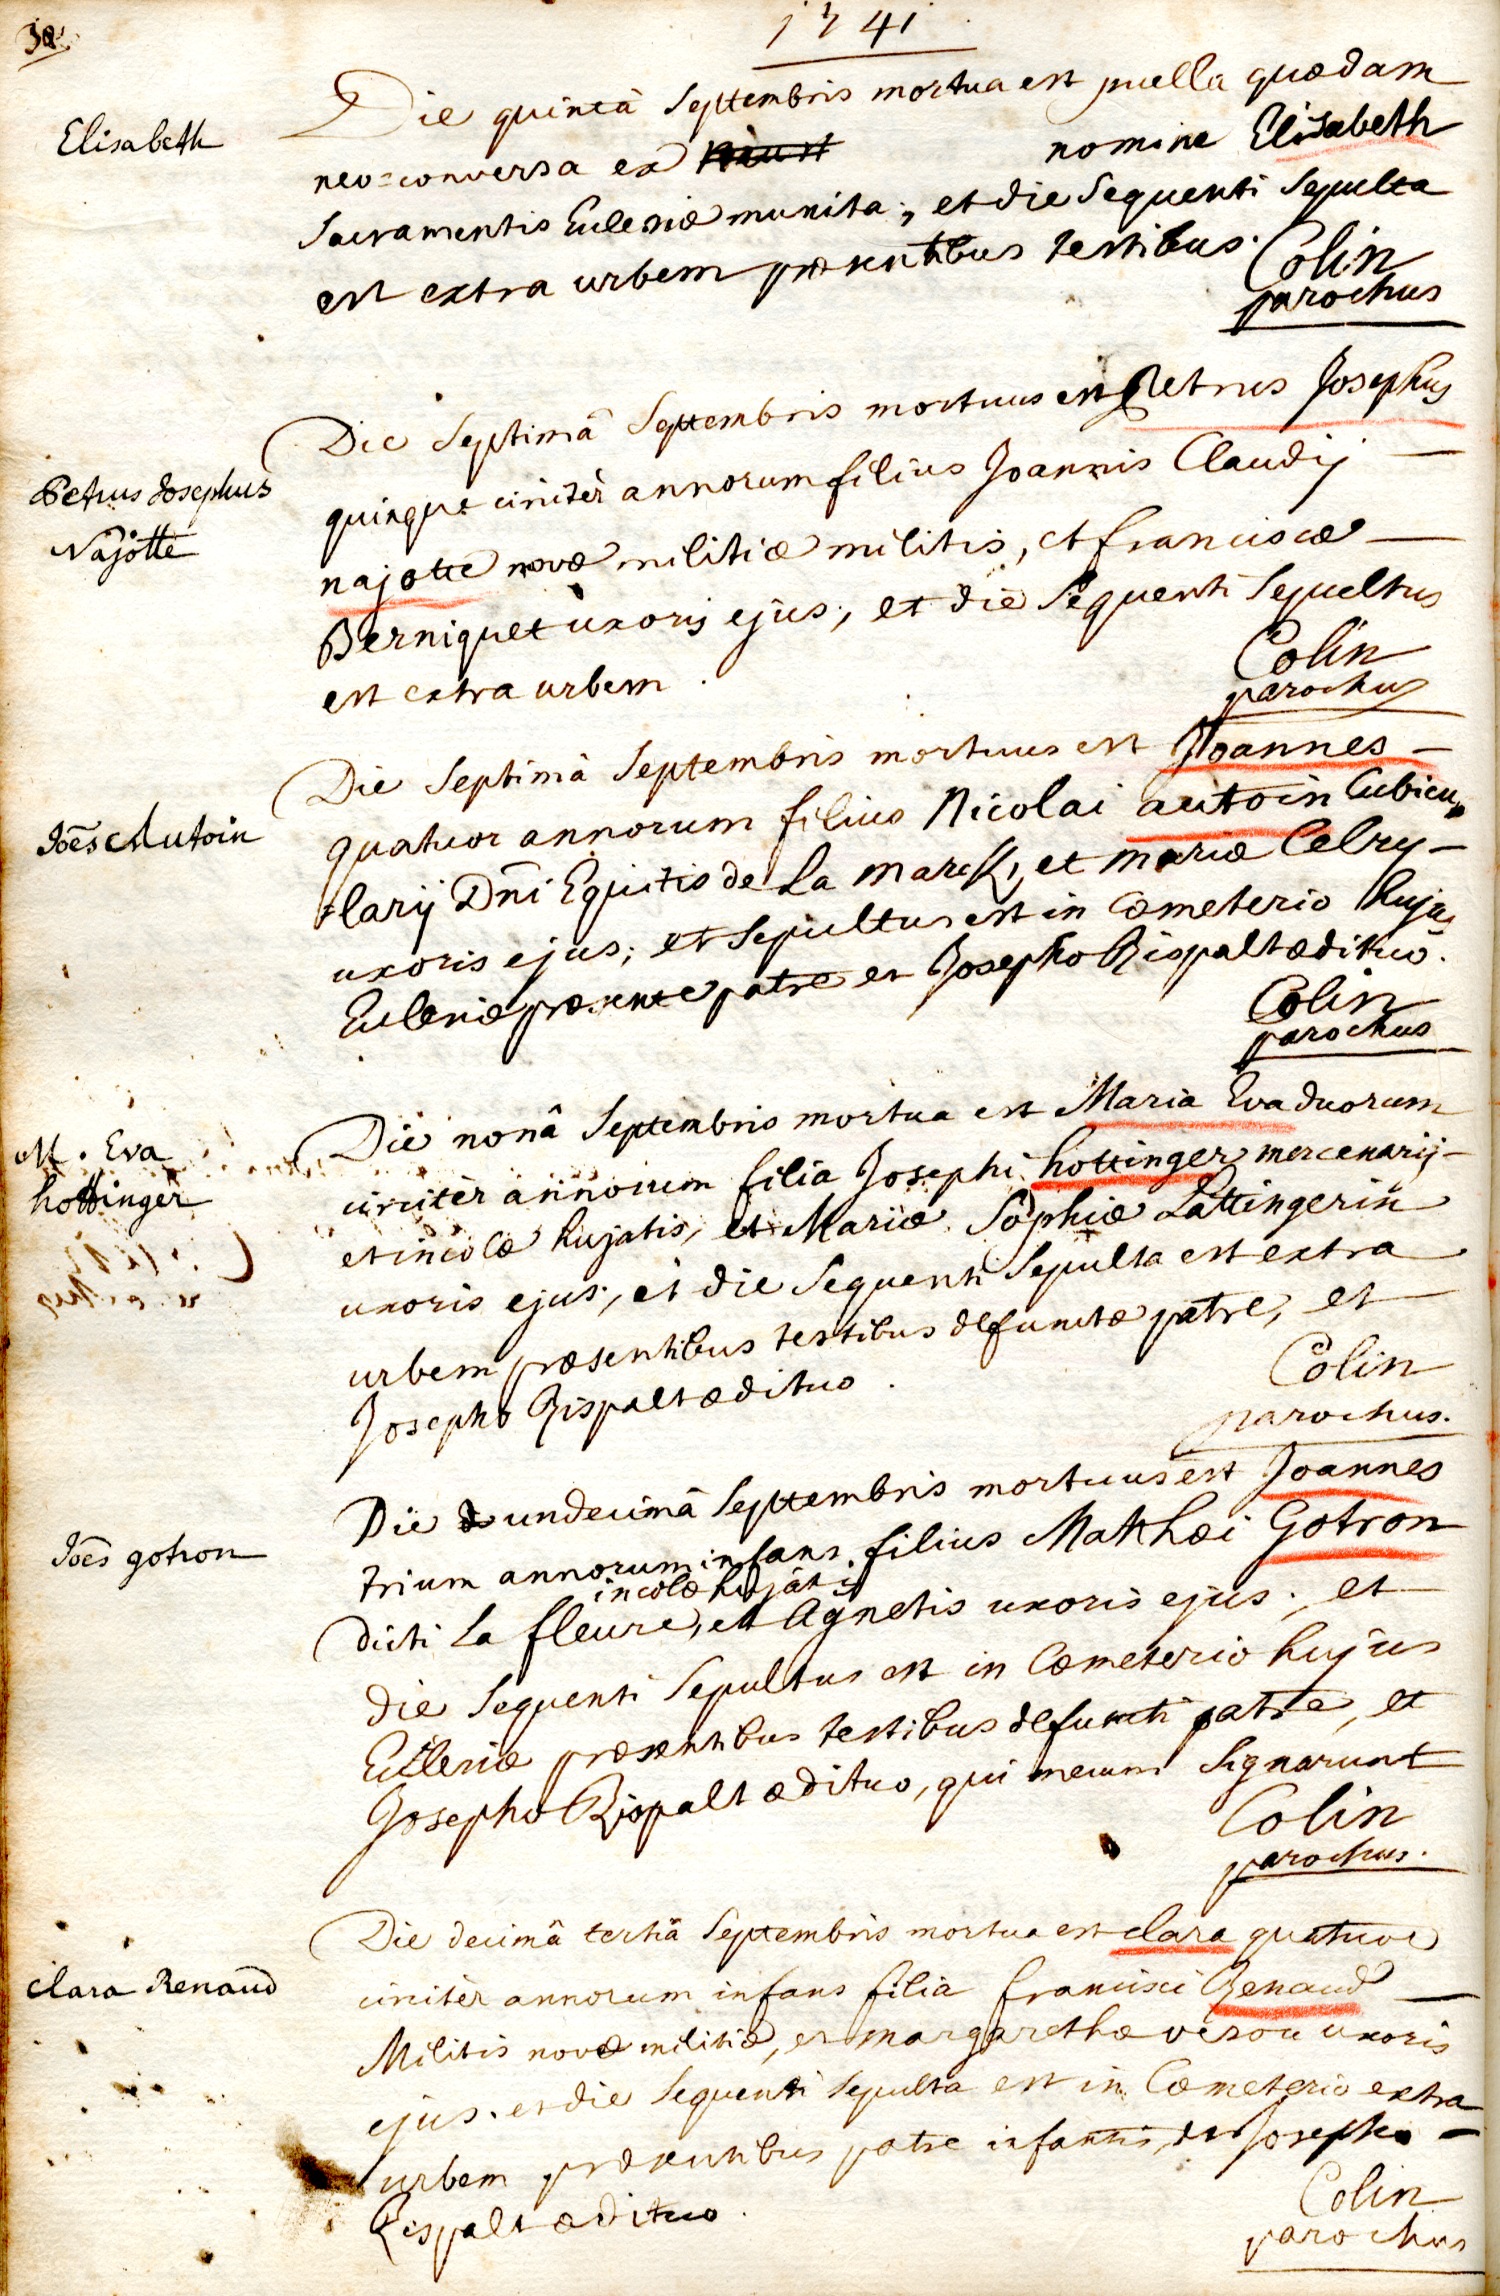 38
1741
Elisabeth
Die quintâ Septembris mortua est puella quædam
neo=conversa ex nomine Elisabeth
Sacramentis Ecclesiæ munita; et die Sequenti Sepulta
est extra urbem præsentibus testibus.
Colin
parochus
Petrus Josephus
Najotte
Die Septimâ Septembris mortuus est Petrus Josephus
quinque circitèr annorum filius Joannis Claudij
najotte novæ militiæ militis, et franciscæ
Berniquet uxoris ejus; et die Sequenti Sepultus
est extra urbem.
Colin
parochus
Joēs Autoin
Die Septimâ Septembris mortuus est Joannes
quatuor annorum filius Nicolai autoin Cubicu=
=larij Dñi Equitis de La Marck, et mariæ Celry
uxoris ejus; et Sepultus est in Cœmeterio hujus
Ecclesiæ præsente patre et Josepho Rispalt ædituo.
Colin
parochus
M. Eva
hottinger
Die nonâ Septembris mortua est Maria Eva duorum
circitèr annorum filia Josephi hottinger mercenarij
et incolæ hujatis, et Mariæ Sophiæ Lattingerin
uxoris ejus; et die Sequenti Sepulta est extra
urbem præsentibus testibus defunctæ patre, et
Josepho Rispalt ædituo.
Colin
parochus.
Joēs gotron
Die undecimâ Septembris mortuus est Joannes
trium annorum infans filius Matthæi Gotron
incolæ hujatis
dicti La fleure, et Agnetis uxoris ejus; et
die Sequenti Sepultus est in Cœmeterio hujus
Ecclesiæ præsentibus testibus defuncti patre, et
Josepho Rispalt ædituo, qui mecum Signarunt
Colin
parochus.
Clara Renaud
Die decimâ tertiâ Septembris mortua est clara quatuor
circitèr annorum infans filia francisci Renaud
Militis novæ militiæ, et margarethæ veson uxoris
ejus. et die Sequenti Sepulta est in Cœmeterio extra
urbem præsentibus patre infantis, et Josepho
Rispalt ædituo.
Colin
parochus